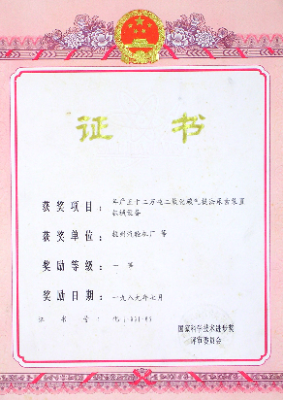 证 书
获奖项目：年产五十二万吨二氧化碳气提法尿素装置
机械设备
获奖单位：杭州汽轮机厂 等
奖励等级：一 等
奖励日期：一九八九年七月
证书号：
国家科学技术进步奖
评审委员会